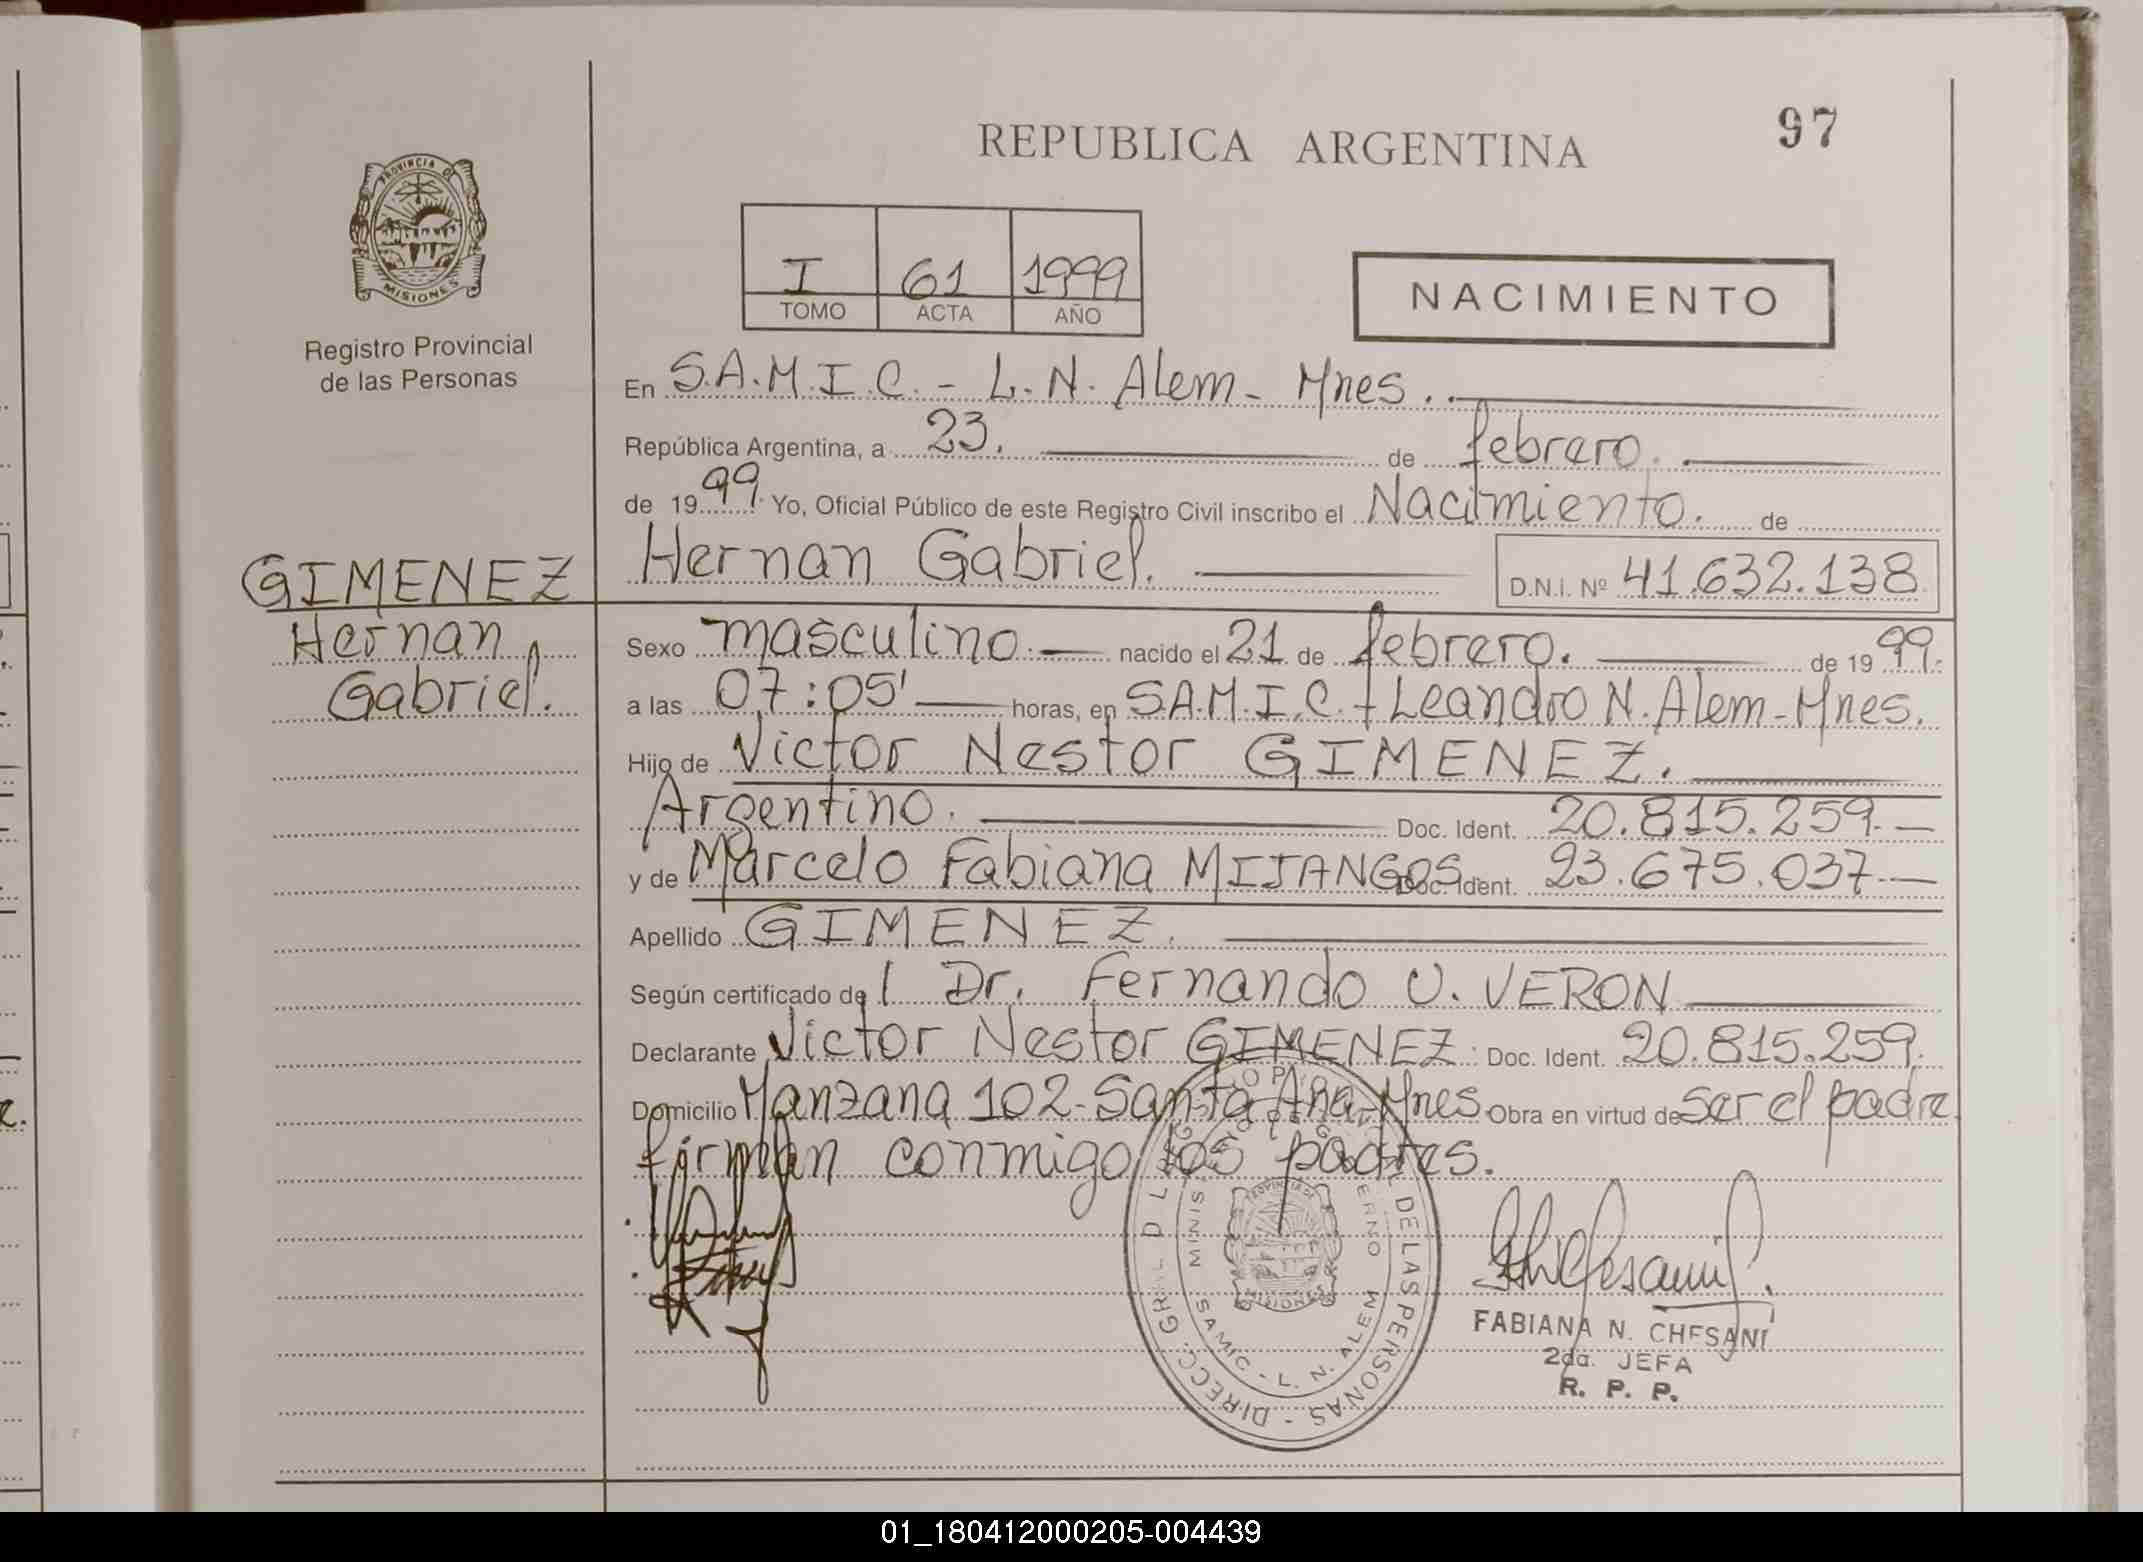 97
REPUBLICA ARGENTINA
PROVINCIA DE
MISIONES
Registro Provincial
de las Personas
I 61 1999
TOMO ACTA AÑO
NACIMIENTO
En S.A.M.I.C. - L.N. Alem - Mnes.
República Argentina, a 23. de febrero.
de 1999. Yo, Oficial Público de este Registro Civil inscribo el Nacimiento. de
Hernan Gabriel. D.N.I. Nº 41.632.138
GIMENEZ
Hernan
Gabriel.
Sexo masculino. nacido el 21 de febrero. de 1999.
a las 07:05' horas, en S.A.M.I.C. - Leandro N. Alem - Mnes.
Hijo de Victor Nestor GIMENEZ.
Argentino. Doc. Ident. 20.815.259.-
y de Marcelo Fabiana MIJANGOS Doc. Ident. 23.675.037.-
Apellido GIMENEZ.
Según certificado del Dr. Fernando U. VERON
Declarante Victor Nestor GIMENEZ. Doc. Ident. 20.815.259.
Domicilio Manzana 102 - Santa Ana - Mnes. Obra en virtud de ser el padre.
firman conmigo los padres.
DE LAS PERSONAS - DIRECC. GRAL. DEL
SAMIC - L. N. ALEM
PROVINCIA DE
MISIONES
FABIANA N. CHESANI
2da. JEFA
R. P. P.
01_180412000205-004439